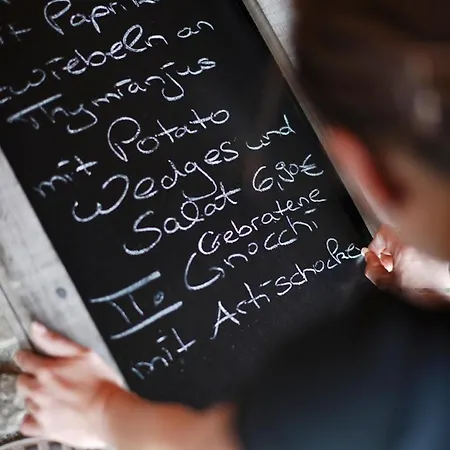 mit Paprika
zwiebeln an
Thymianjus
mit Potato
Wedges und
Salat 6,90€
Gebratene
II. Gnocchi
mit Artischocke